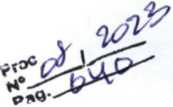 Proc
Nº 08 / 2023
Pag. 040